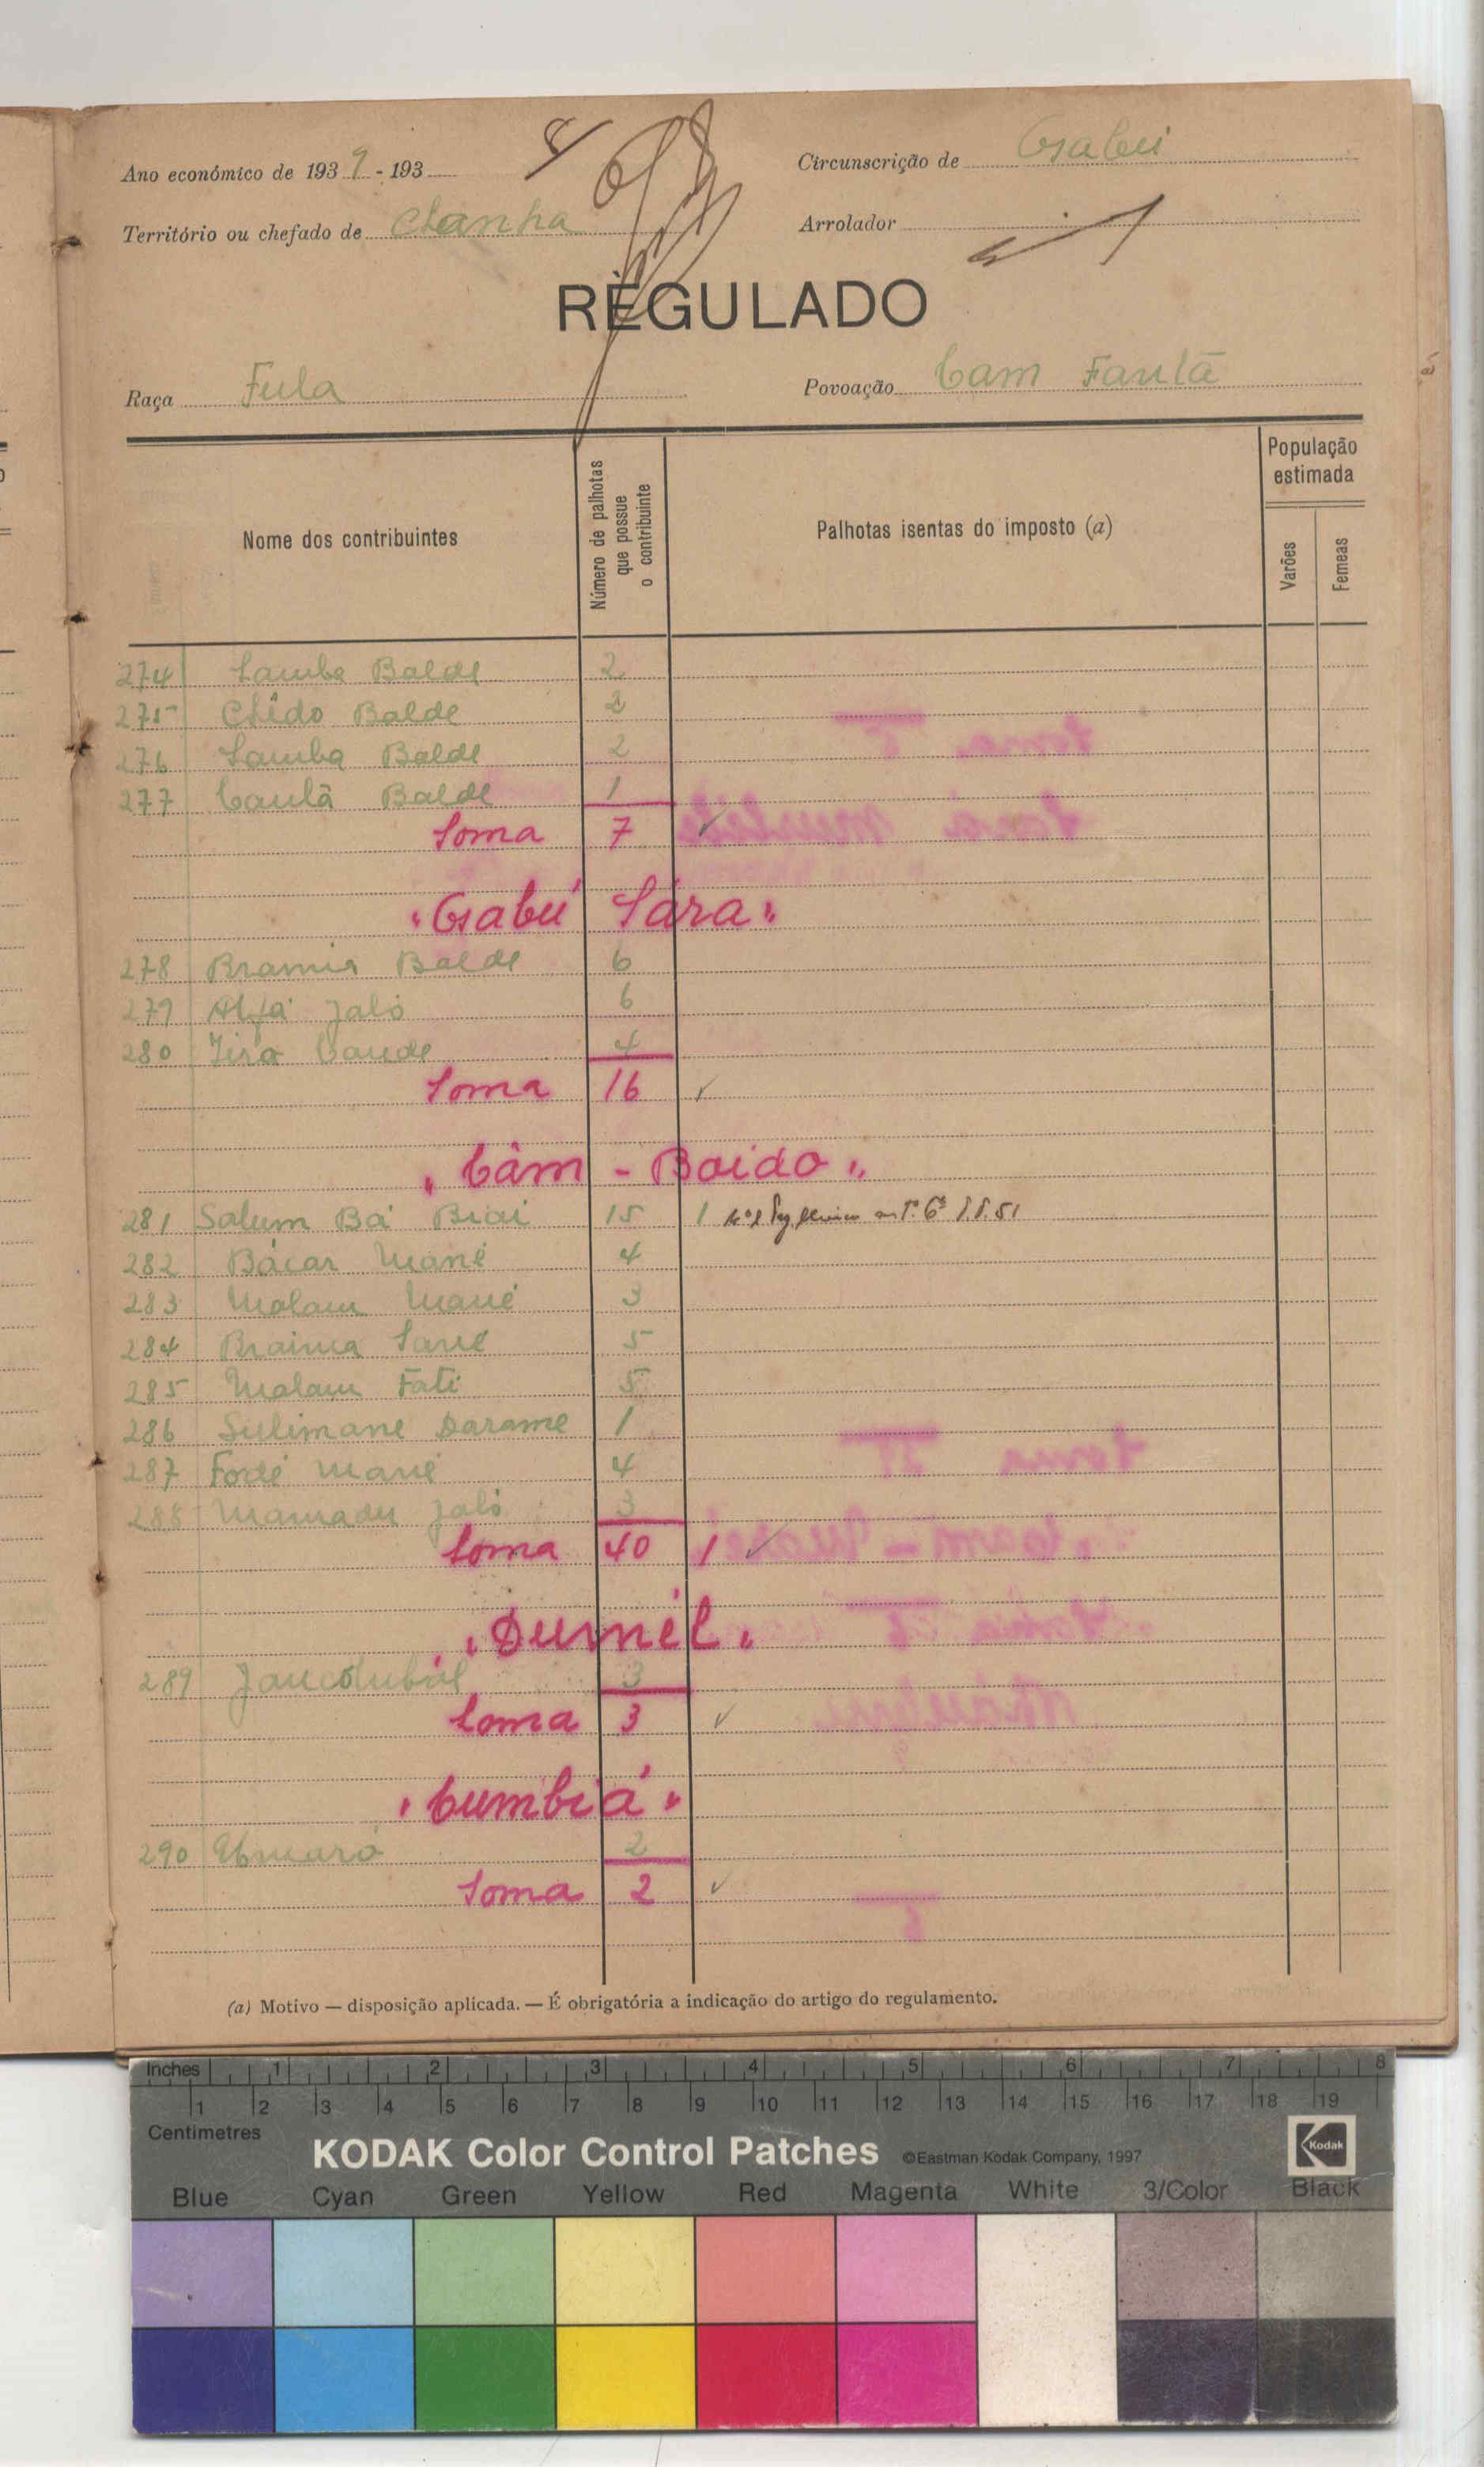 Ano económico de 1939-193
Circunscrição de Gabú
Território ou chefado de Chanha
Arrolador
REGULADO
Raça Fula
Povoação Cam Fantã
Nome dos contribuintes
Número de palhotas que possue o contribuinte
Palhotas isentas do imposto (a)
População estimada
Varões
Femeas
274 Samba Balde 2
275 Chido Balde 2
276 Samba Balde 2
277 Balde 1
Soma 7
"Gabú Sára"
278 Braima Balde 6
279 Alfa Jaló 6
280 Baude 4
Soma 16
"Câm - Boido"
281 Salum Bá Biai 15 1
282 Bácar Mané 4
283 Malam Mané 3
284 Braima Sané 5
285 Malam Fati 5
286 Sulimane Darame 1
287 Fodé Mané 4
288 Mamadu Jaló 3
Soma 40 1
"Dumél"
289 3
Soma 3
"Cumbiá"
290 Umaro 2
Soma 2
(a) Motivo — disposição aplicada. — É obrigatória a indicação do artigo do regulamento.
Inches 1 2 3 4 5 6 7 8
1 2 3 4 5 6 7 8 9 10 11 12 13 14 15 16 17 18 19
Centimetres
KODAK Color Control Patches ©Eastman Kodak Company, 1997 Kodak
Blue Cyan Green Yellow Red Magenta White 3/Color Black